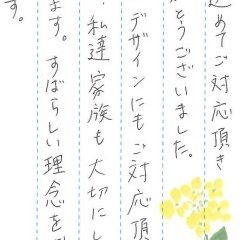 込めてご対応頂き
とうございました。
デザインにもご対応頂
私達家族も大切にし
ます。すばらしい理念を
す。